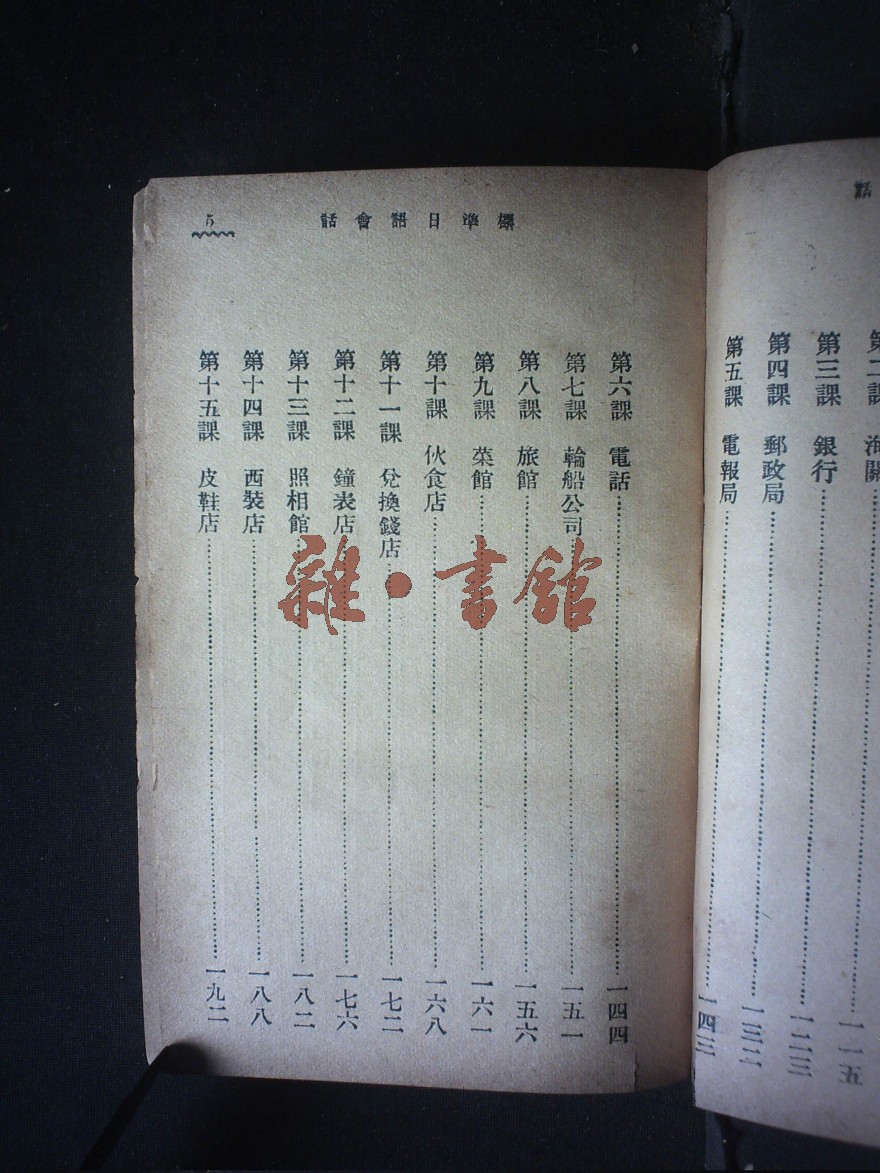 話
第二課 海關……一一五
第三課 銀行……一二三
第四課 郵政局……一三二
第五課 電報局……一四三
標準日語會話 5
第六課 電話……一四四
第七課 輪船公司……一五一
第八課 旅館……一五六
第九課 菜館……一六一
第十課 伙食店……一六八
第十一課 兌換錢店……一七二
第十二課 鐘表店……一七六
第十三課 照相館……一八二
第十四課 西裝店……一八八
第十五課 皮鞋店……一九二
雜·書館